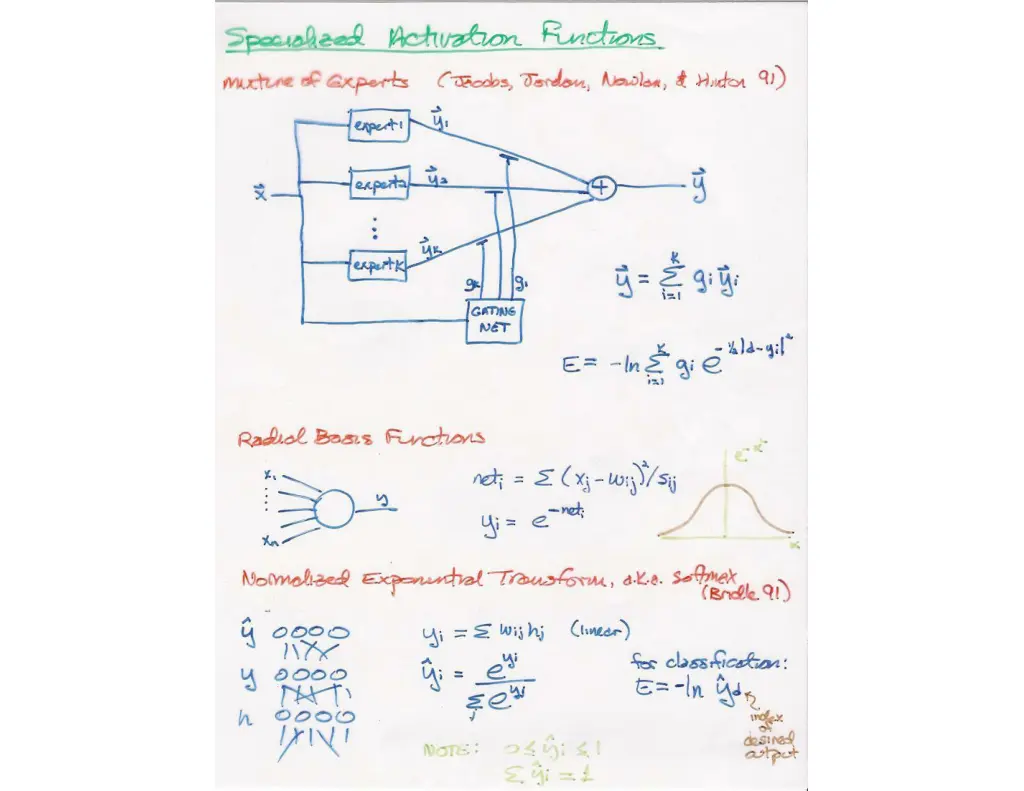 Specialized Activation Functions
Mixture of Experts (Jacobs, Jordan, Nowlan, & Hinton 91)
expert 1
y⃗₁
expert 2
y⃗₂
x⃗
+
y⃗
⋮
expert K
y⃗ₖ
gₖ
g₁
GATING
NET
y⃗ = Σᵢ₌₁ᴷ gᵢ y⃗ᵢ
E = -ln Σᵢ₌₁ᴷ gᵢ e^(-½|d-yᵢ|²)
Radial Basis Functions
x₁
⋮
xₙ
y
netᵢ = Σ (xⱼ - wᵢⱼ)²/sᵢⱼ
yᵢ = e^(-netᵢ)
e^(-x²)
x
Normalized Exponential Transform, a.k.a. softmax
(Bridle 91)
ŷ
y
h
yᵢ = Σ wᵢⱼhⱼ (linear)
ŷᵢ = e^(yᵢ) / Σⱼ e^(yⱼ)
for classification:
E = -ln ŷ_d
index
of
desired
output
NOTE: 0 ≤ ŷᵢ ≤ 1
Σ ŷᵢ = 1